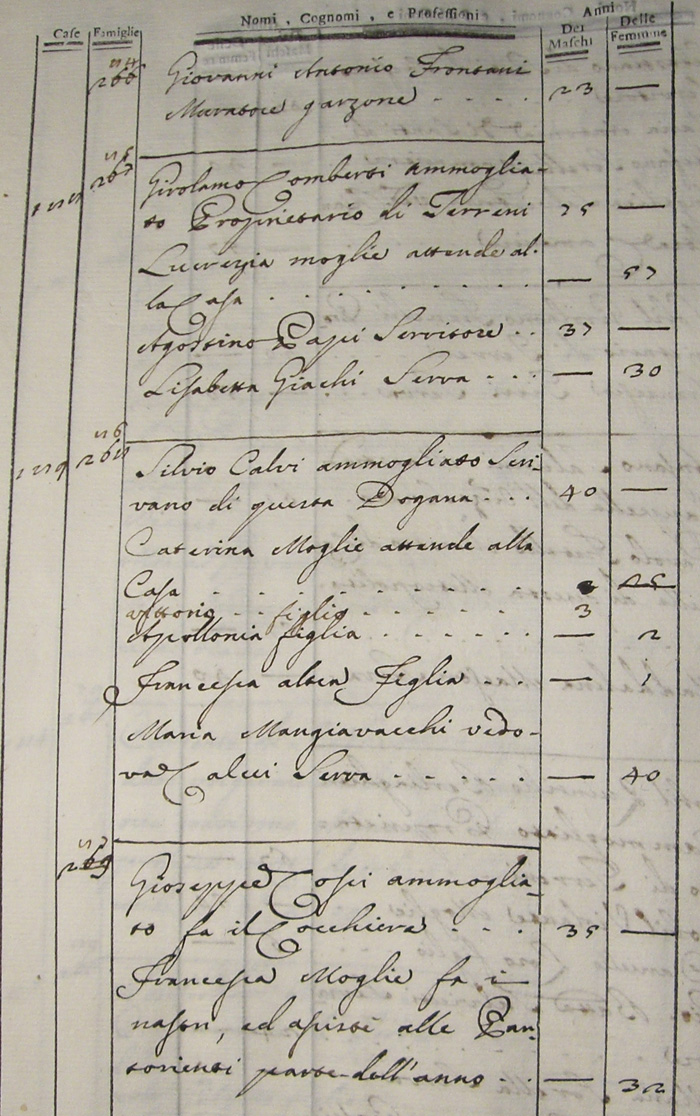 Case Famiglie Nomi, Cognomi, e Professioni Anni Dei Maschi Delle Femmine
266 Giovanni Antonio Frontani
Muratore garzone 23 —
267 Girolamo Comberti ammoglia-
to Proprietario di Terreni 75 —
Lucrezia moglie attende al-
la Casa — 57
Agostino Papi Servitore 37 —
Lisabetta Giachi Serva — 30
268 Silvio Calvi ammogliato Scri-
vano di questa Dogana 40 —
Caterina Moglie attende alla
Casa 25
Vittorio figlio 3
Apollonia figlia — 2
Francesca altra Figlia — 1
Maria Mangiavacchi vedo-
va Calui Serva — 40
269 Giuseppe Cosci ammoglia-
to fa il Cocchiere 35 —
Francesca Moglie fa i
nastri, ed assiste alle Par-
torienti parte dell'anno — 32